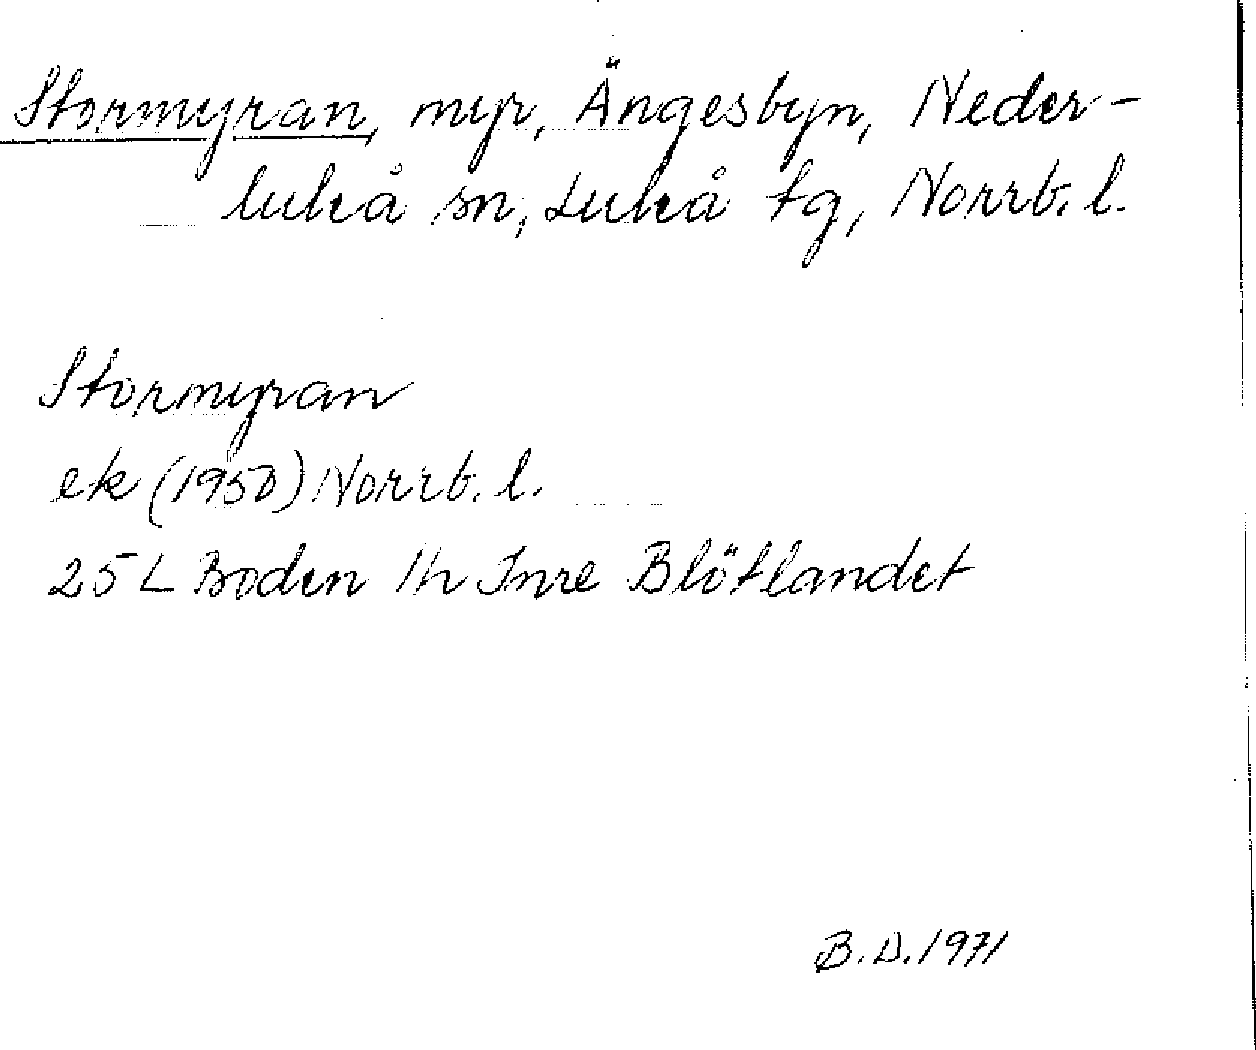 Stormyran, myr, Ängesbyn, Neder-
luleå sn, Luleå tg, Norrb. l.
Stormyran
ek (1950) Norrb. l.
25 L Boden 1h Inre Blötlandet
B.D. 1971